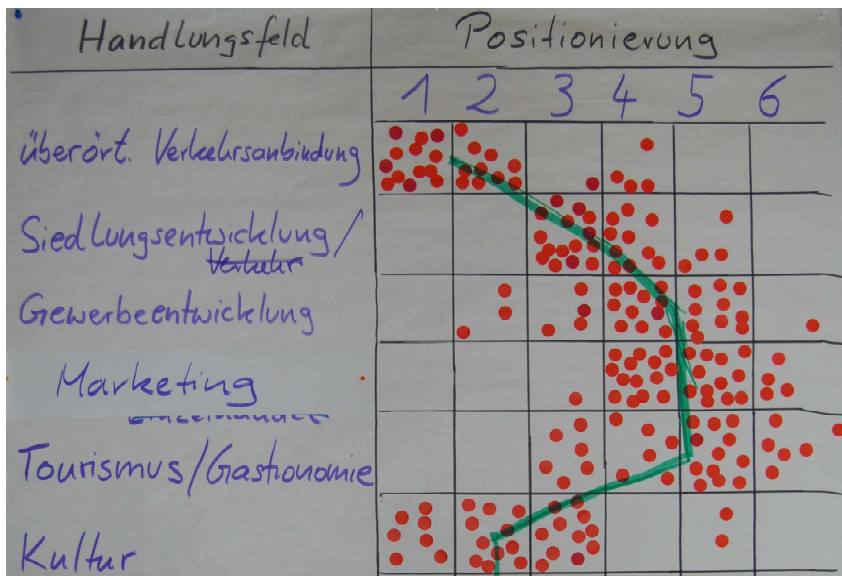 Handlungsfeld Positionierung
1 2 3 4 5 6
überört. Verkehrsanbindung
Siedlungsentwicklung/
Verkehr
Gewerbeentwicklung
Marketing
Tourismus/Gastronomie
Kultur